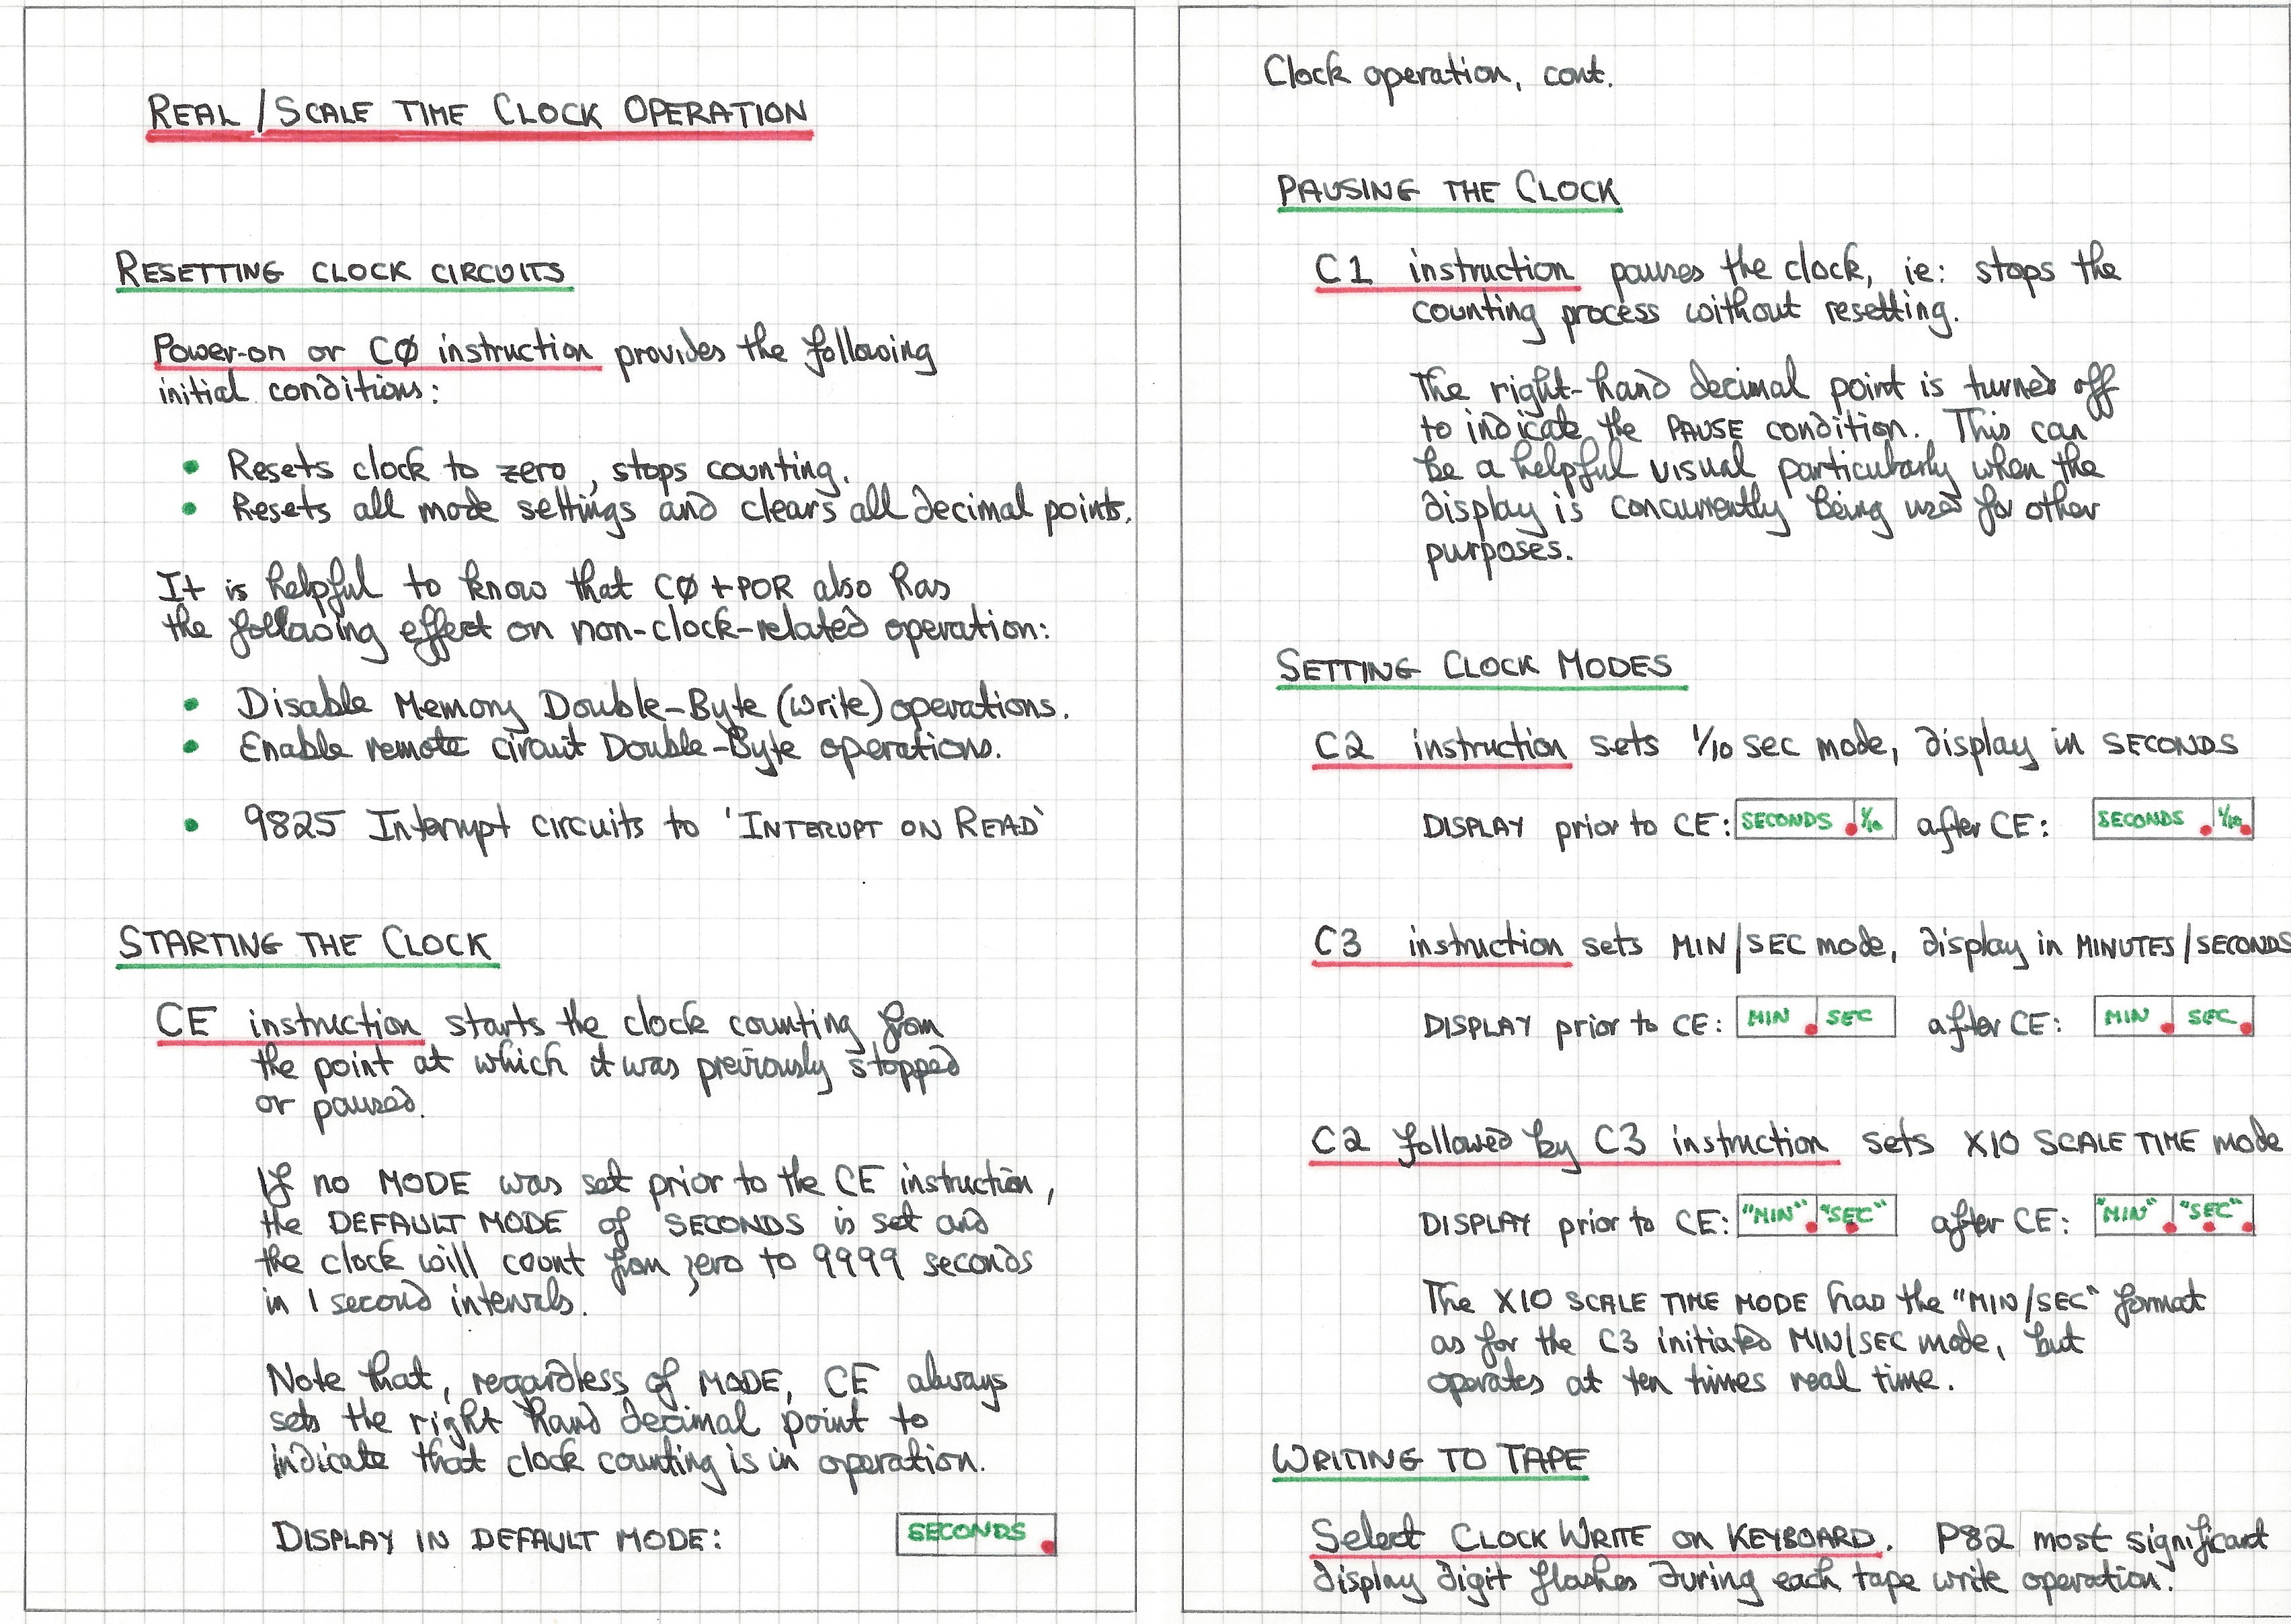 REAL/SCALE TIME CLOCK OPERATION
RESETTING CLOCK CIRCUITS
Power-on or CØ instruction provides the following
initial conditions:
• Resets clock to zero, stops counting.
• Resets all mode settings and clears all decimal points.
It is helpful to know that CØ + POR also has
the following effect on non-clock-related operation:
• Disable Memory Double-Byte (write) operations.
• Enable remote circuit Double-Byte operations.
• 9825 Interrupt circuits to 'INTERUPT ON READ'
STARTING THE CLOCK
CE instruction starts the clock counting from
the point at which it was previously stopped
or paused.
If no MODE was set prior to the CE instruction,
the DEFAULT MODE of SECONDS is set and
the clock will count from zero to 9999 seconds
in 1 second intervals.
Note that, regardless of MODE, CE always
sets the right hand decimal point to
indicate that clock counting is in operation.
DISPLAY IN DEFAULT MODE: SECONDS .
Clock operation, cont.
PAUSING THE CLOCK
C1 instruction pauses the clock, ie: stops the
counting process without resetting.
The right-hand decimal point is turned off
to indicate the PAUSE condition. This can
be a helpful visual particularly when the
display is concurrently being used for other
purposes.
SETTING CLOCK MODES
C2 instruction sets 1/10 sec mode, display in SECONDS
DISPLAY prior to CE: SECONDS . 1/10 after CE: SECONDS . 1/10 .
C3 instruction sets MIN/SEC mode, display in MINUTES/SECONDS
DISPLAY prior to CE: MIN . SEC after CE: MIN . SEC .
C2 followed by C3 instruction sets X10 SCALE TIME mode
DISPLAY prior to CE: "MIN" . "SEC" . after CE: "MIN" . "SEC" . .
The X10 SCALE TIME MODE had the "MIN/SEC" format
as for the C3 initiated MIN/SEC mode, but
operates at ten times real time.
WRITING TO TAPE
Select CLOCK WRITE ON KEYBOARD. P82 most significant
display digit flashes during each tape write operation.